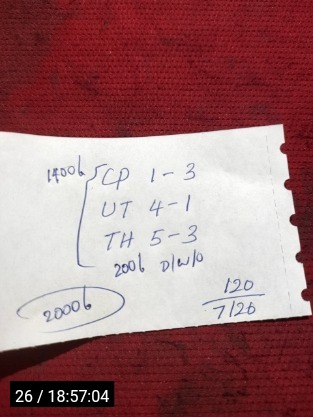 1400b CP 1-3
UT 4-1
TH 5-3
200b D/W/O
2000b
120
7120
26 / 18:57:04